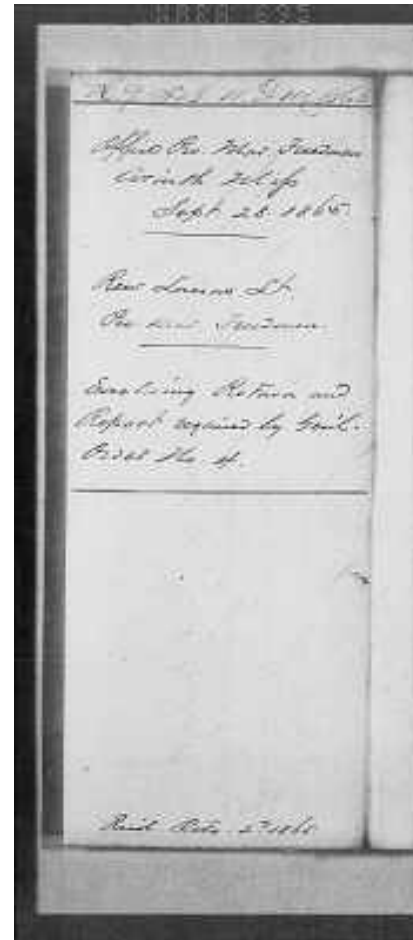 Office Pro. Mar. Freedmen
Corinth Miss
Sept 28 1865.
Lt.
Pro Mar Freedmen.
Enclosing Return and
Report required by Gen'l.
Order No. 4.
Recd Octo. 2d 1865